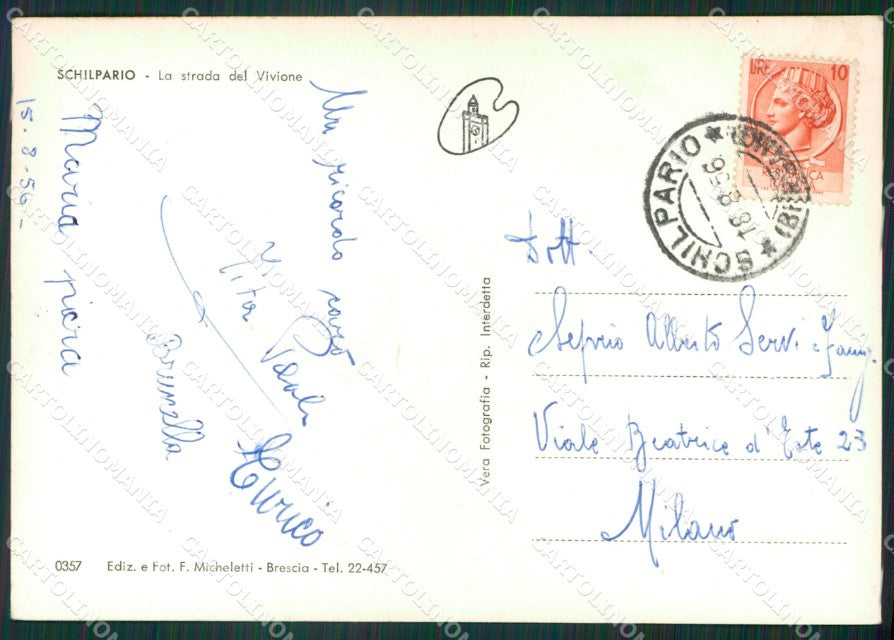 SCHILPARIO - La strada del Vivione
15.8-56-
Maria piera
Un ricordo caro
Vita
Paola
Brunella
Enrico
Vera Fotografia - Rip. Interdetta
LIRE 10
SCHILPARIO
18 8 56
SCHILPARIO
Dott.
Alberto Servi e Famig.
Viale Beatrice d'Este 23
Milano
0357 Ediz. e Fot. F. Micheletti - Brescia - Tel. 22-457
CARTOLINOMANIA